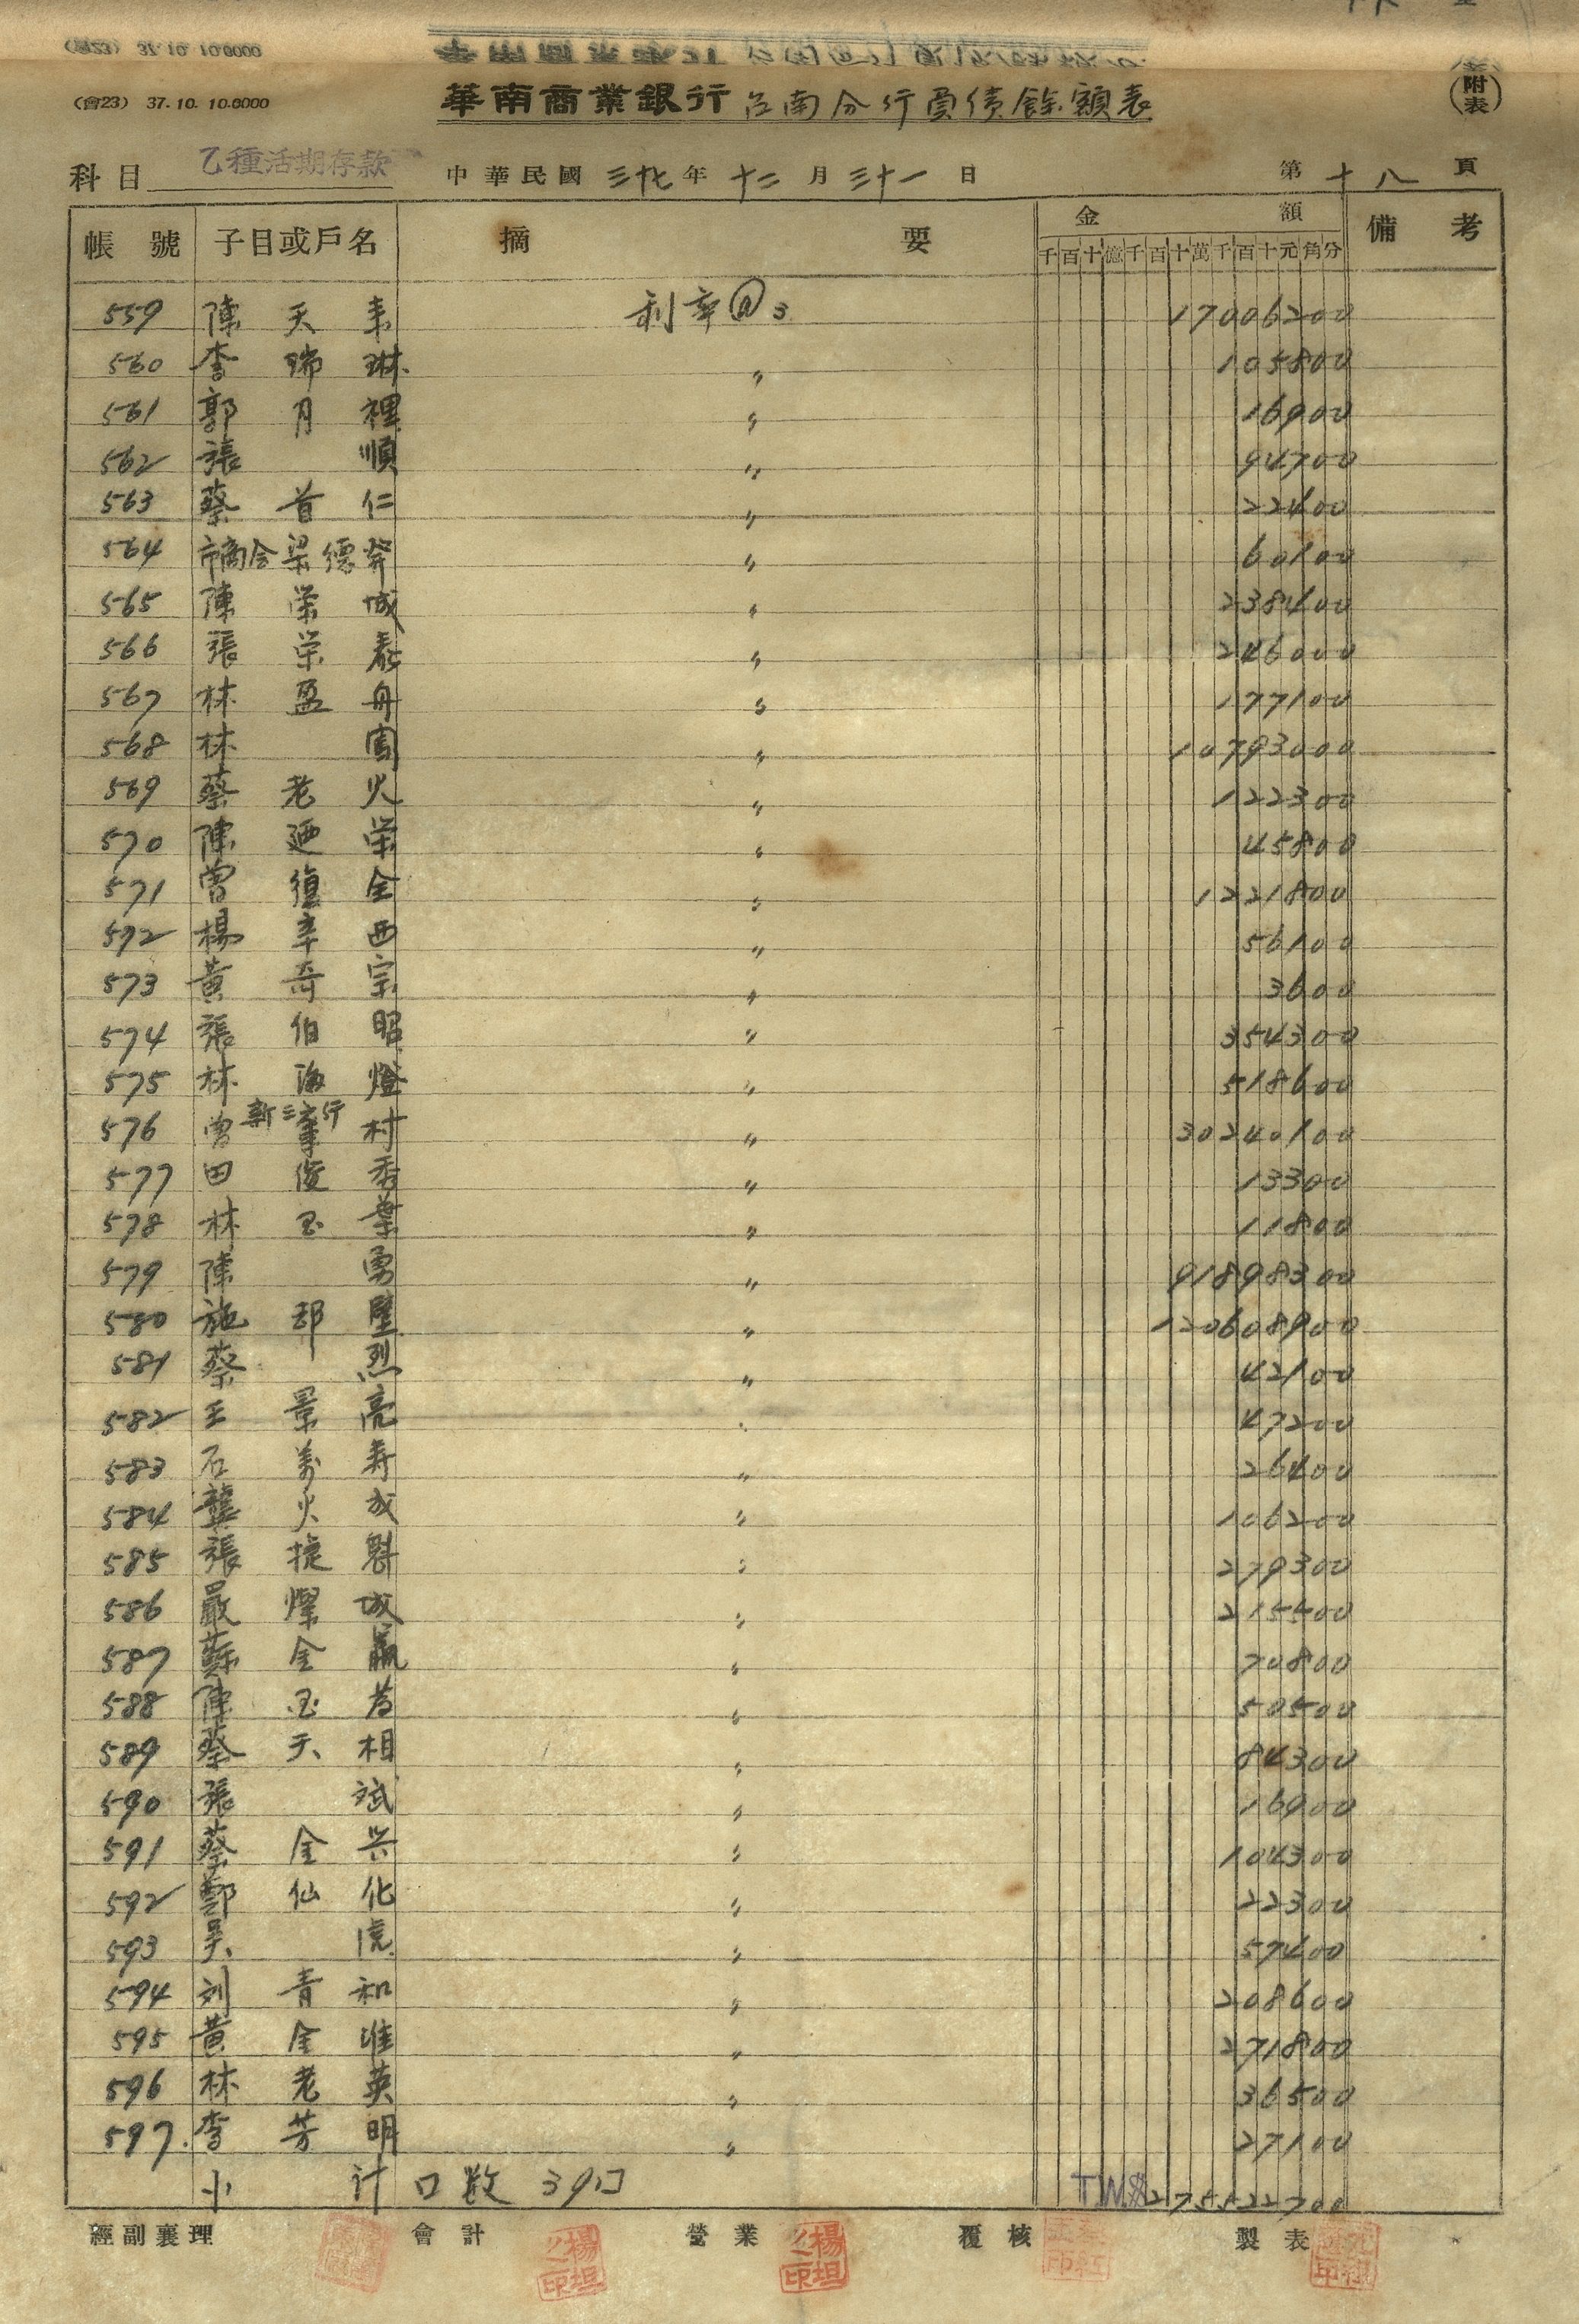 (會23) 37.10. 10.0000
(會23) 37.10. 10.0000
華南商業銀行台南分行資債餘額表
(附表)
科目 乙種活期存款 中華民國三十七年十二月三十一日 第十八頁
帳號 子目或戶名 摘要 金額 備考
千百十億千百十萬千百十元角分
559 陳天来 利率@3 17006200
560 李瑞琳 〃 105800
561 郭月裡 〃 16900
562 張順 〃 94700
563 蔡首仁 〃 22400
564 市商会梁德发 〃 60100
565 陳栄城 〃 238400
566 張栄泰 〃 246000
567 林盈舟 〃 177100
568 林園 〃 10793000
569 蔡老火 〃 122300
570 陳廼栄 〃 45800
571 曾復全 〃 1221800
572 楊辛西 〃 56100
573 黃奇宗 〃 3600
574 張伯昭 〃 354300
575 林海燈 〃 518600
新三峯行
576 曾峯村 〃 30240100
577 田俊秀 〃 13300
578 林玉葉 〃 11800
579 陳勇 〃 91898300
580 施邦壁 〃 120608900
581 蔡烈 〃 42100
582 王景亮 〃 47200
583 石萬寿 〃 26400
584 龔火成 〃 106200
585 張捷魁 〃 279300
586 嚴燦城 〃 215500
587 蘇金贏 〃 70800
588 陳玉 〃 50500
589 蔡天相 〃 84300
590 張斌 〃 16900
591 蔡金兴 〃 104300
592 鄭仙化 〃 22300
593 吳虎 〃 57400
594 刘青和 〃 208600
595 黄金准 〃 271800
596 林老英 〃 36500
597. 李芳明 〃 27100
小計 口数 39口 TW$275522700
經副襄理 會計 營業 覆核 製表
楊坦之印 楊坦之印